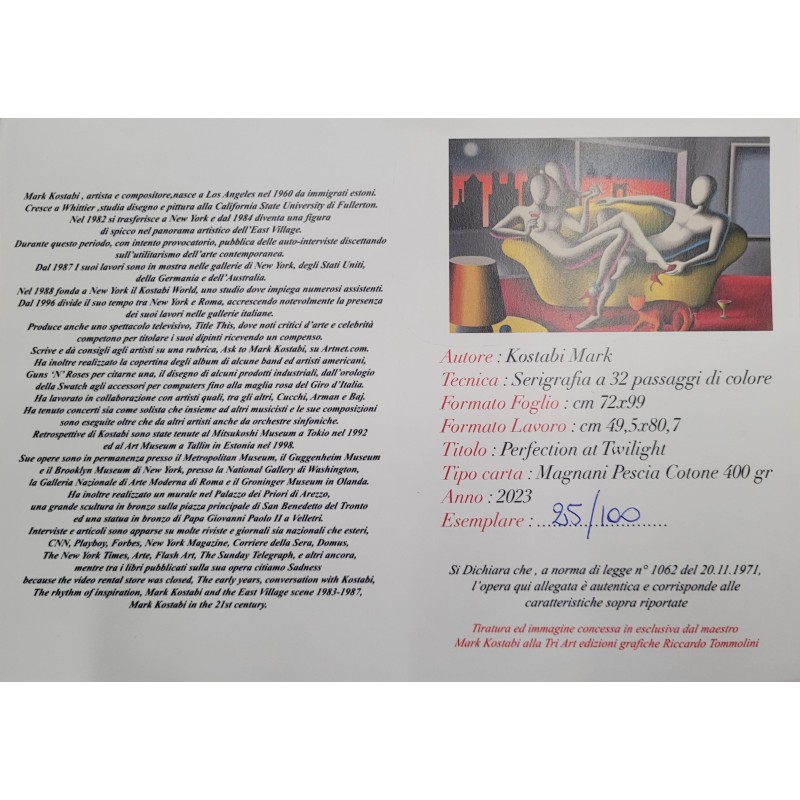 Mark Kostabi , artista e compositore,nasce a Los Angeles nel 1960 da immigrati estoni.
Cresce a Whittier ,studia disegno e pittura alla California State University di Fullerton.
Nel 1982 si trasferisce a New York e dal 1984 diventa una figura
di spicco nel panorama artistico dell'East Village.
Durante questo periodo, con intento provocatorio, pubblica delle auto-interviste discettando
sull'utilitarismo dell'arte contemporanea.
Dal 1987 I suoi lavori sono in mostra nelle gallerie di New York, degli Stati Uniti,
della Germania e dell'Australia.
Nel 1988 fonda a New York il Kostabi World, uno studio dove impiega numerosi assistenti.
Dal 1996 divide il suo tempo tra New York e Roma, accrescendo notevolmente la presenza
dei suoi lavori nelle gallerie italiane.
Produce anche uno spettacolo televisivo, Title This, dove noti critici d'arte e celebrità
competono per titolare i suoi dipinti ricevendo un compenso.
Scrive e dà consigli agli artisti su una rubrica, Ask to Mark Kostabi, su Artnet.com.
Ha inoltre realizzato la copertina degli album di alcune band ed artisti americani,
Guns 'N' Roses per citarne una, il disegno di alcuni prodotti industriali, dall'orologio
della Swatch agli accessori per computers fino alla maglia rosa del Giro d'Italia.
Ha lavorato in collaborazione con artisti quali, tra gli altri, Cucchi, Arman e Baj.
Ha tenuto concerti sia come solista che insieme ad altri musicisti e le sue composizioni
sono eseguite oltre che da altri artisti anche da orchestre sinfoniche.
Retrospettive di Kostabi sono state tenute al Mitsukoshi Museum a Tokio nel 1992
ed al Art Museum a Tallin in Estonia nel 1998.
Sue opere sono in permanenza presso il Metropolitan Museum, il Guggenheim Museum
e il Brooklyn Museum di New York, presso la National Gallery di Washington,
la Galleria Nazionale di Arte Moderna di Roma e il Groninger Museum in Olanda.
Ha inoltre realizzato un murale nel Palazzo dei Priori di Arezzo,
una grande scultura in bronzo sulla piazza principale di San Benedetto del Tronto
ed una statua in bronzo di Papa Giovanni Paolo II a Velletri.
Interviste e articoli sono apparse su molte riviste e giornali sia nazionali che esteri,
CNN, Playboy, Forbes, New York Magazine, Corriere della Sera, Domus,
The New York Times, Arte, Flash Art, The Sunday Telegraph, e altri ancora,
mentre tra i libri pubblicati sulla sua opera citiamo Sadness
because the video rental store was closed, The early years, conversation with Kostabi,
The rhythm of inspiration, Mark Kostabi and the East Village scene 1983-1987,
Mark Kostabi in the 21st century.
Autore : Kostabi Mark
Tecnica : Serigrafia a 32 passaggi di colore
Formato Foglio : cm 72x99
Formato Lavoro : cm 49,5x80,7
Titolo : Perfection at Twilight
Tipo carta : Magnani Pescia Cotone 400 gr
Anno : 2023
Esemplare : 25/100
Si Dichiara che , a norma di legge n° 1062 del 20.11.1971,
l'opera qui allegata è autentica e corrisponde alle
caratteristiche sopra riportate
Tiratura ed immagine concessa in esclusiva dal maestro
Mark Kostabi alla Tri Art edizioni grafiche Riccardo Tommolini